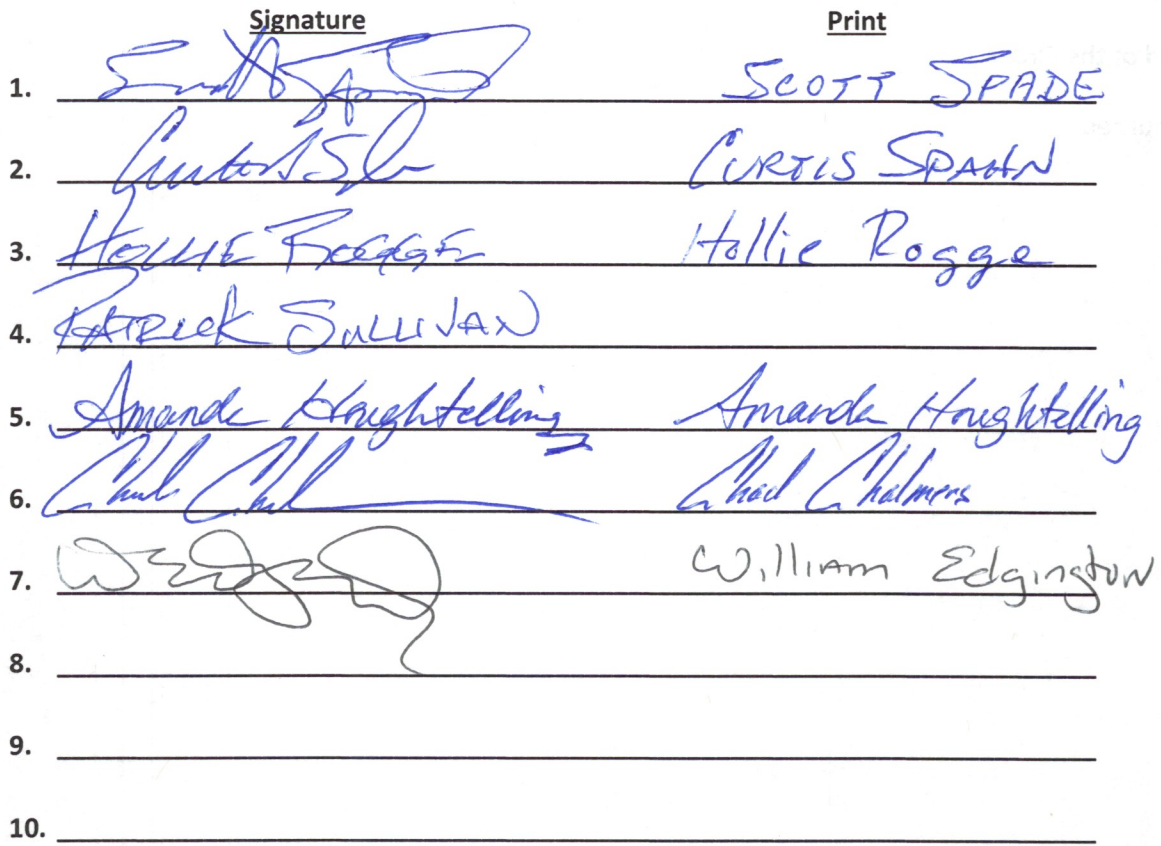 Signature Print
1. SCOTT SPADE
2. CURTIS SPAHN
3. HOLLIE ROGGE Hollie Rogge
4. PATRICK SULLIVAN
5. Amanda Houghtelling Amanda Houghtelling
6. Chad Chalmers
7. William Edgington
8.
9.
10.